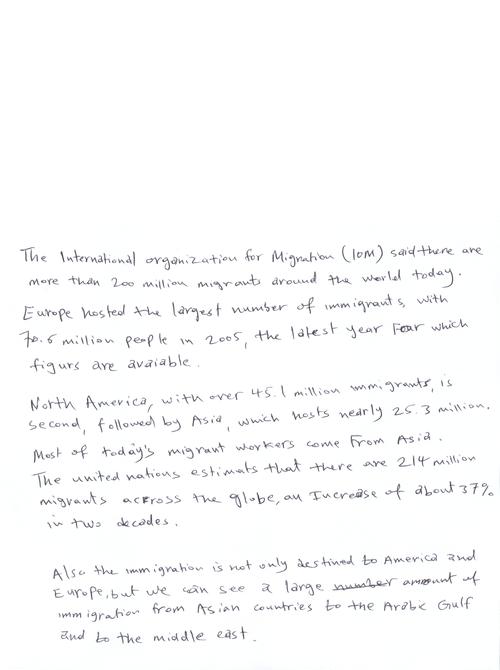 The International organization for Migration (IOM) said there are
more than 200 million migrants around the world today.
Europe hosted the largest number of immigrants, with
70.6 million people in 2005, the latest year Four which
figurs are avaiable.
North America, with over 45.1 million immigrants, is
second, followed by Asia, which hosts nearly 25.3 million.
Most of today's migrant workers come From Asia.
The united nations estimats that there are 214 million
migrants accross the globe, an Increase of about 37%
in two decades.
Also the immigration is not only destined to America and
Europe, but we can see a large number amount of
immigration from Asian countries to the Arabic Gulf
and to the middle east.